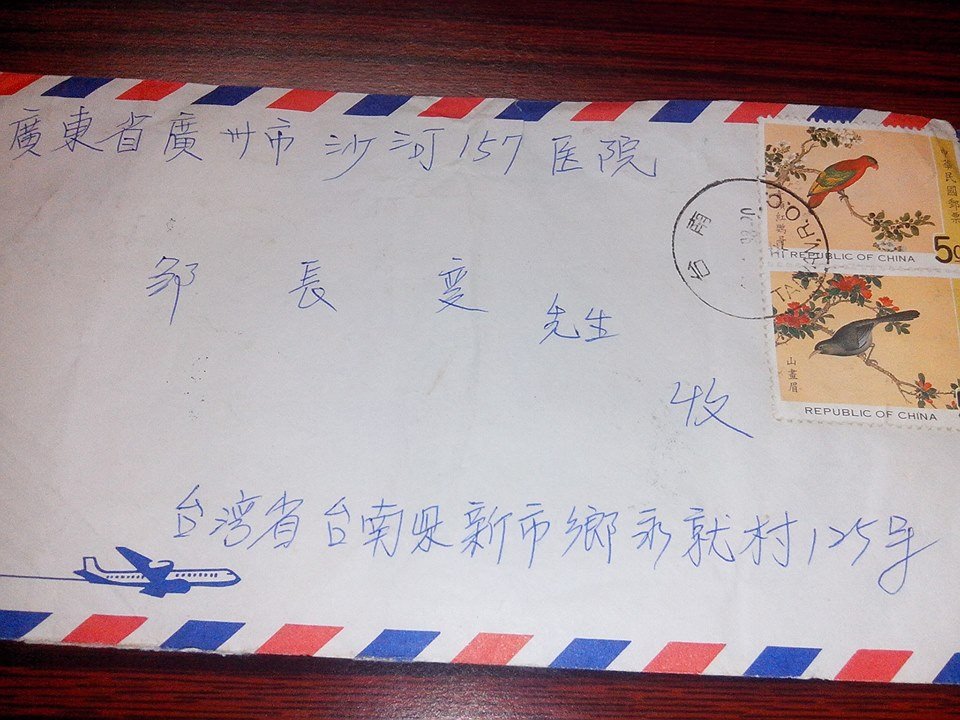 廣東省廣州市沙河157医院
邹長变
先生
收
台湾省台南県新市鄉永就村125号
台南
TAIWAN R.O.C.
中華民國郵票
REPUBLIC OF CHINA
5
山畫眉
REPUBLIC OF CHINA